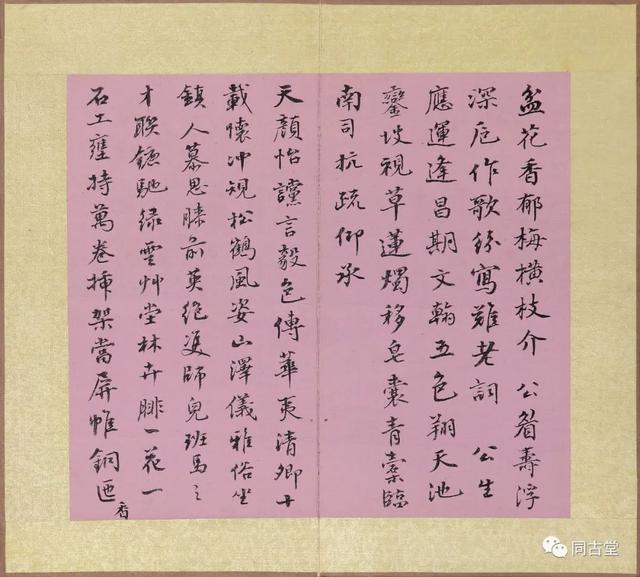 盆花香郁梅橫枝介 公眉壽浮
深卮作歌寫難老詞 公生
應運逢昌期文翰五色翔天池
鑾坡視草蓮燭移皂囊青臨
南司抗疏仰承
天顏怡讜言毅色傳華夷清卿十
載懷沖規松鶴風姿山澤儀雅俗坐
鎮人慕思膝前英絕師兒班馬之
才聯鑣馳綠雲艸堂林卉腓一花一
石工持萬卷插架當屏帷銅匜
香
同古堂